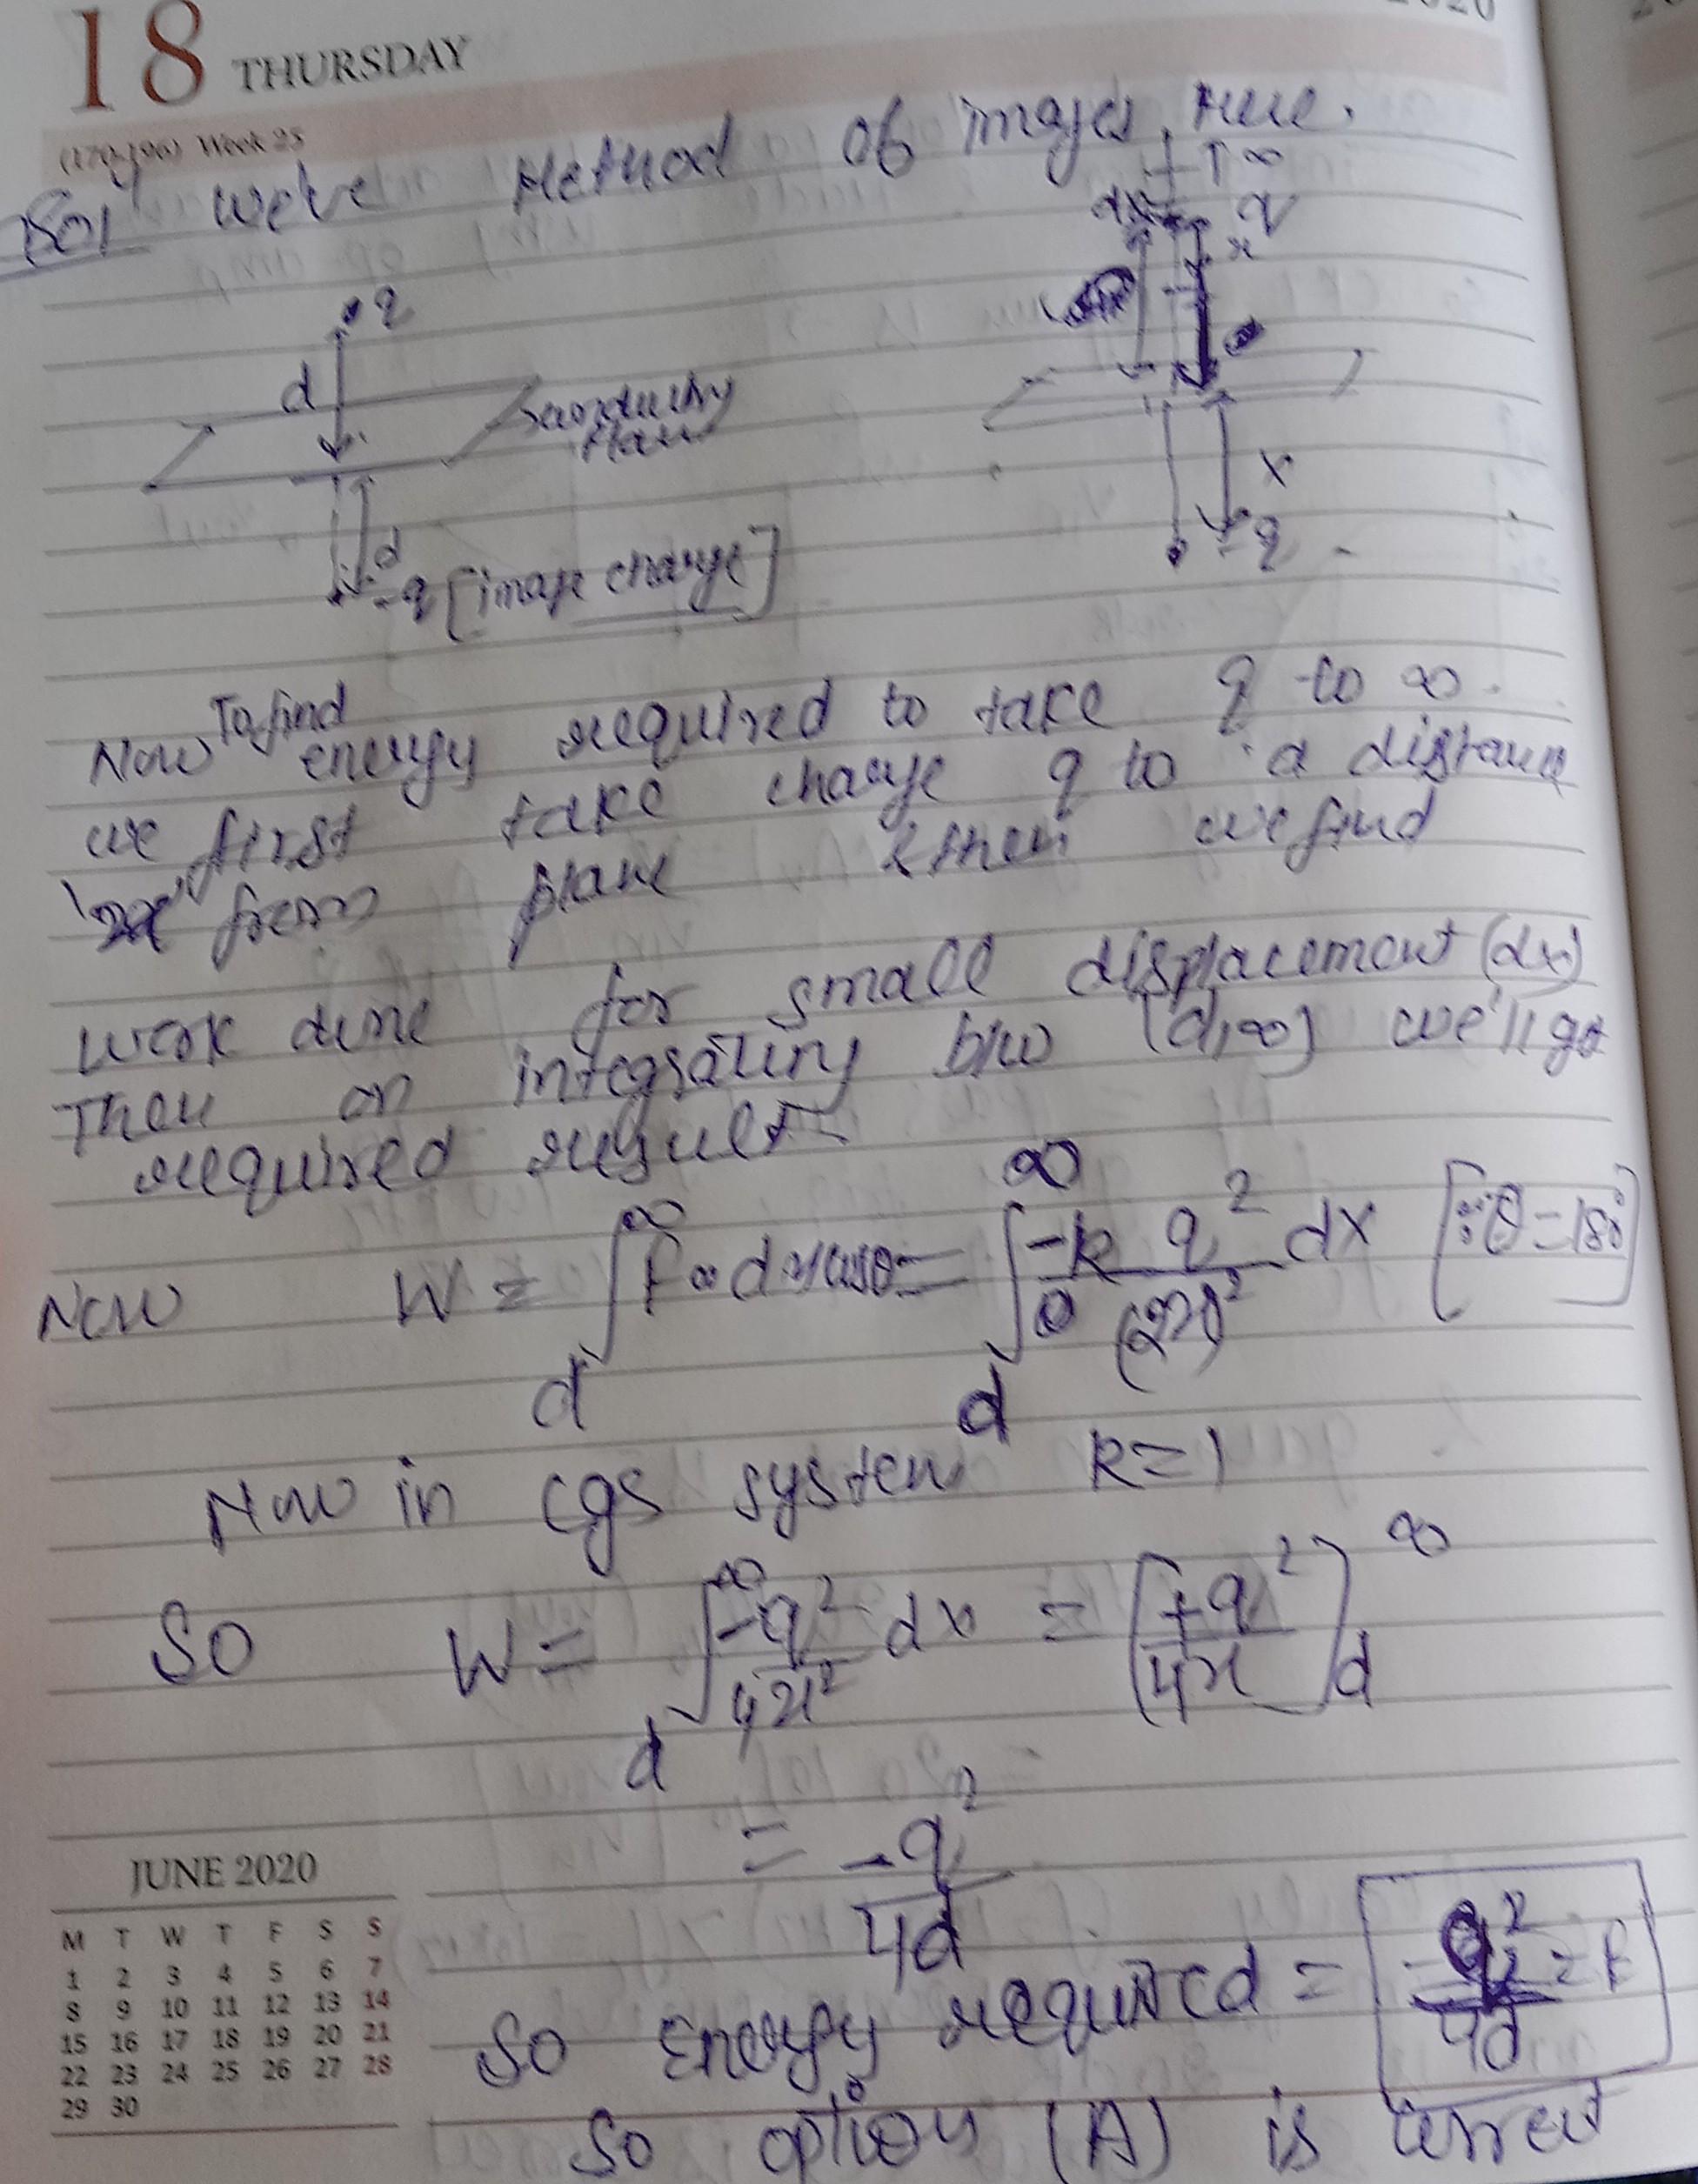 2020
18 THURSDAY
(170-196) Week 25
Sol We've Method of images here.
∞
dx q
x
q
d
conducting
plane
x
d
-q [image charge]
-q
Now To find energy required to take q to ∞
we first take charge q to a distance
'x' from plane & then we find
work done for small displacement (dx)
Then on integrating b/w (d,∞) we'll get
required result
Now W = ∫_d^∞ F∞ dx cosθ = ∫_d^∞ -k q²/(2x)² dx [∵ θ = 180°]
Now in cgs system k=1
So W = ∫_d^∞ -q²/4x² dx = [+q²/4x]_d^∞
= -q²/4d
JUNE 2020
M T W T F S S
1 2 3 4 5 6 7
8 9 10 11 12 13 14
15 16 17 18 19 20 21
22 23 24 25 26 27 28
29 30
So Energy required = q²/4d
So option (A) is correct